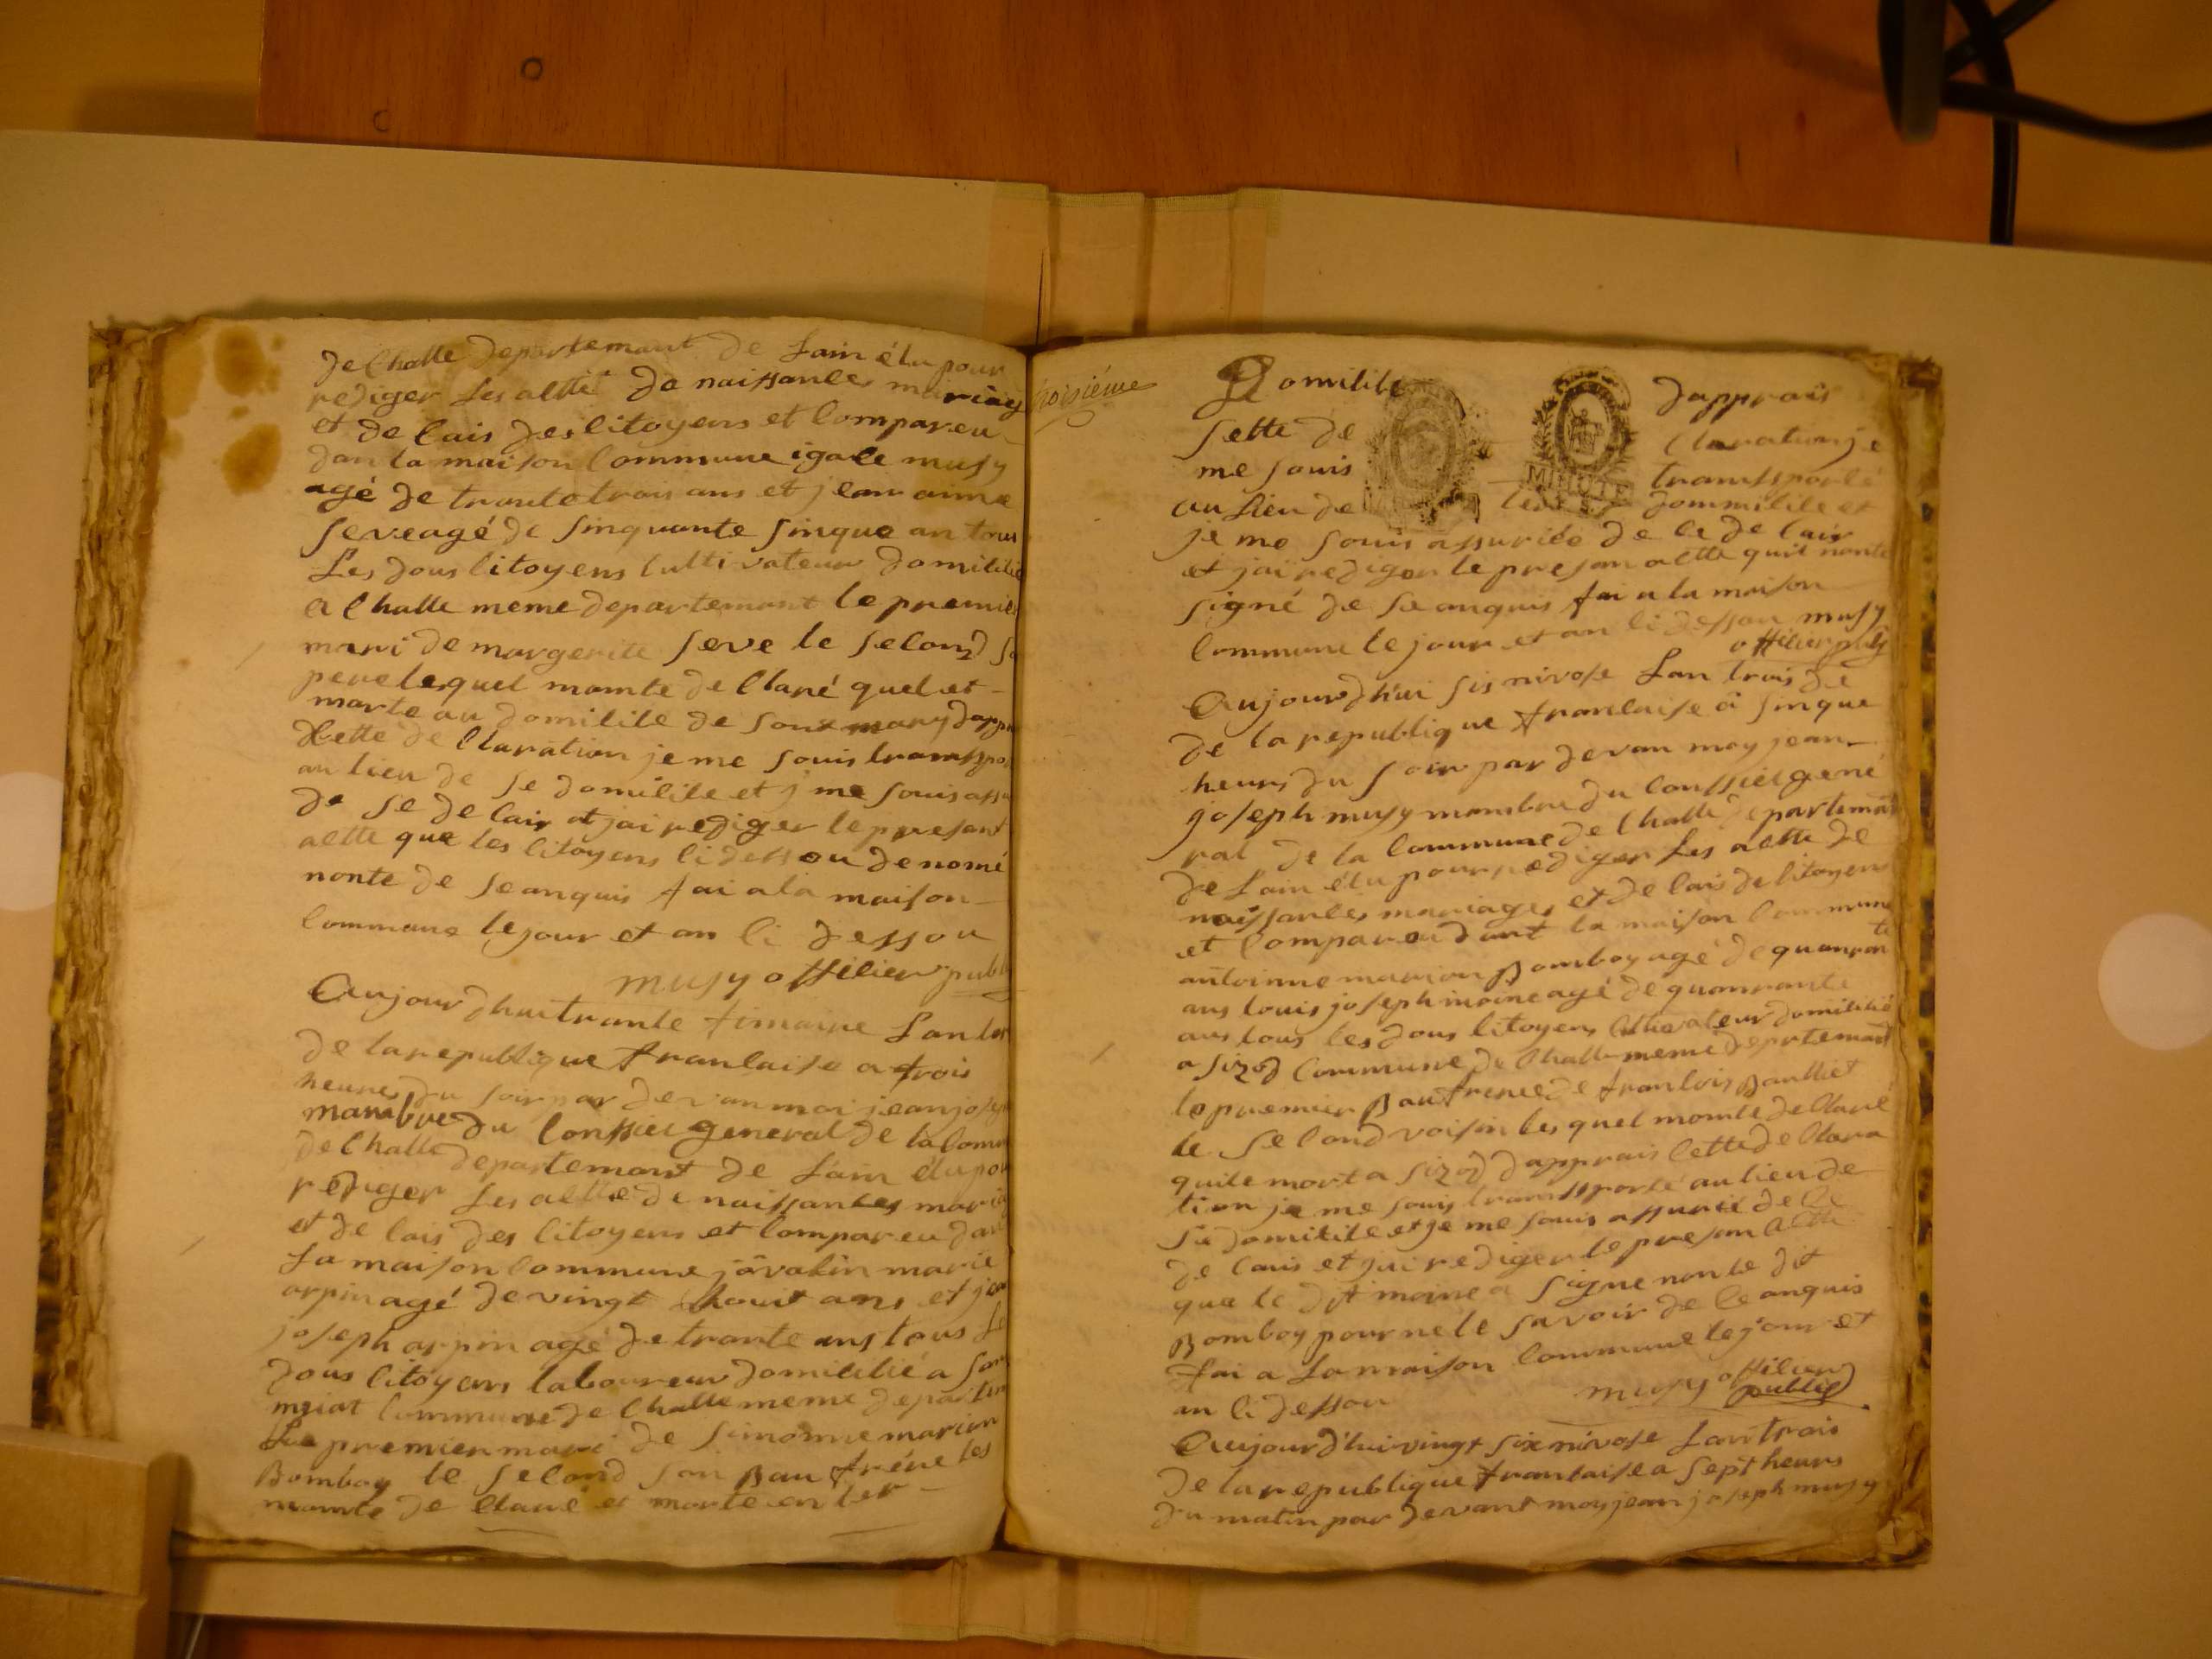 de Chatte departemant de Lain élu pour
rediger Les actte de naissances mariag
et de cais des citoyens et compareu
dan la maison Commune igace musy
agé de trante trois ans et jean aime
seve agé de sinquante sinque an tous
Les dous citoyens cultivateur domicilié
a Chatte meme departemant le premier
mari de margerite seve le second so
pere lequel momte de Claré quel et
morte au domicile de sont mary dappr
Cette de Claration je me souis transspor
au lieu de se domicile et j me souis assu
de se de cais et jai rediger le presant
actte que les citoyens ci dessou denomé
nonte de seanquis fai a la maison
Commune le jour et an ci dessou
musy officier publ
Aujourdhui trante frimaire Lan
de la republique francaise a trois
heures du soir par devan moi jean joseph
mambre du Conssiel general de la Comm
de Chatte departemant de Lain élu pou
rediger Les actte de naissances maria
et de cais des citoyens et compareu dan
La maison Commune marie
arpin agé de vingt houit ans et jean
joseph arpin agé de trante ans tous Le
dous citoyens laboureur domicilié a
Commune de Chatte meme departem
Le premier mari de simonne marion
Bomboy le second son Bau frére les
momte de Claré et morte en
troisiéme
Domicile dapprais
sette de Claration je
me souis transsporté
au Lieu de dommicile et
je me souis assurité de ce de cais
et jai rediger le presan actte quil nonte
signé de seanquis fai a la maison
Commune le jour et an ci dessou musy
officier publ
Aujourdhui sis nivose Lan trois de
de la republique francaise a sinque
heurs du soir par devan moy jean
joseph musy mambre du Conssiel gené
ral de la Commune de Chatte departeman
de Lain élu pour rediger Les actte de
naissances mariages et de cais de citoyens
et compareu dant la maison Commune
antoinne marion Bomboy agé de quanrante
ans louis joseph moine agé de quanrante
ans tous les dous citoyens cultivateur domicilié
a sizod Commune de Chatte meme deprtemant
le premier Bau frerere de francois Baulliet
le second voisin les quel momte de Claré
quile mort a sizod dapprais cette de Clara
tion je me souis transsporté au lieu de
se domicile et je me souis assurié de ce
de cais et jai rediger le presan actte
que le dit moine a signe nonte dit
Bomboy pour ne le savoir de ce anquis
fai a La maison Commune le jour et
an ci dessou musy officier
public
Aujourd'hui vingt six nivose Lan trois
de la republique francaise a sept heurs
du matin par devant moy jean joseph musy